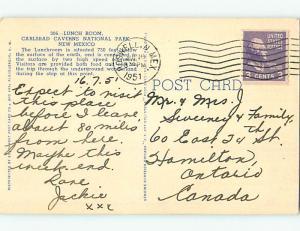 306—LUNCH ROOM,
CARLSBAD CAVERNS NATIONAL PARK,
NEW MEXICO
The Lunchroom is situated 750 feet below
the surface of the earth, and is connected to
the surface by two high speed elevators.
Visitors are provided both food and rest on
the trip through the underground wonderland
during the stop at this point.
N. MEX.
1951
3 CENTS 3
POST CARD
16, 7, 51
Expect to visit
this place
before I leave,
about 80 miles
from here.
Maybe this
week end
Love
Jackie
xxx
Mr. & Mrs. J
Sweeney & Family
60 East 34 St.
Hamilton,
Ontario
Canada